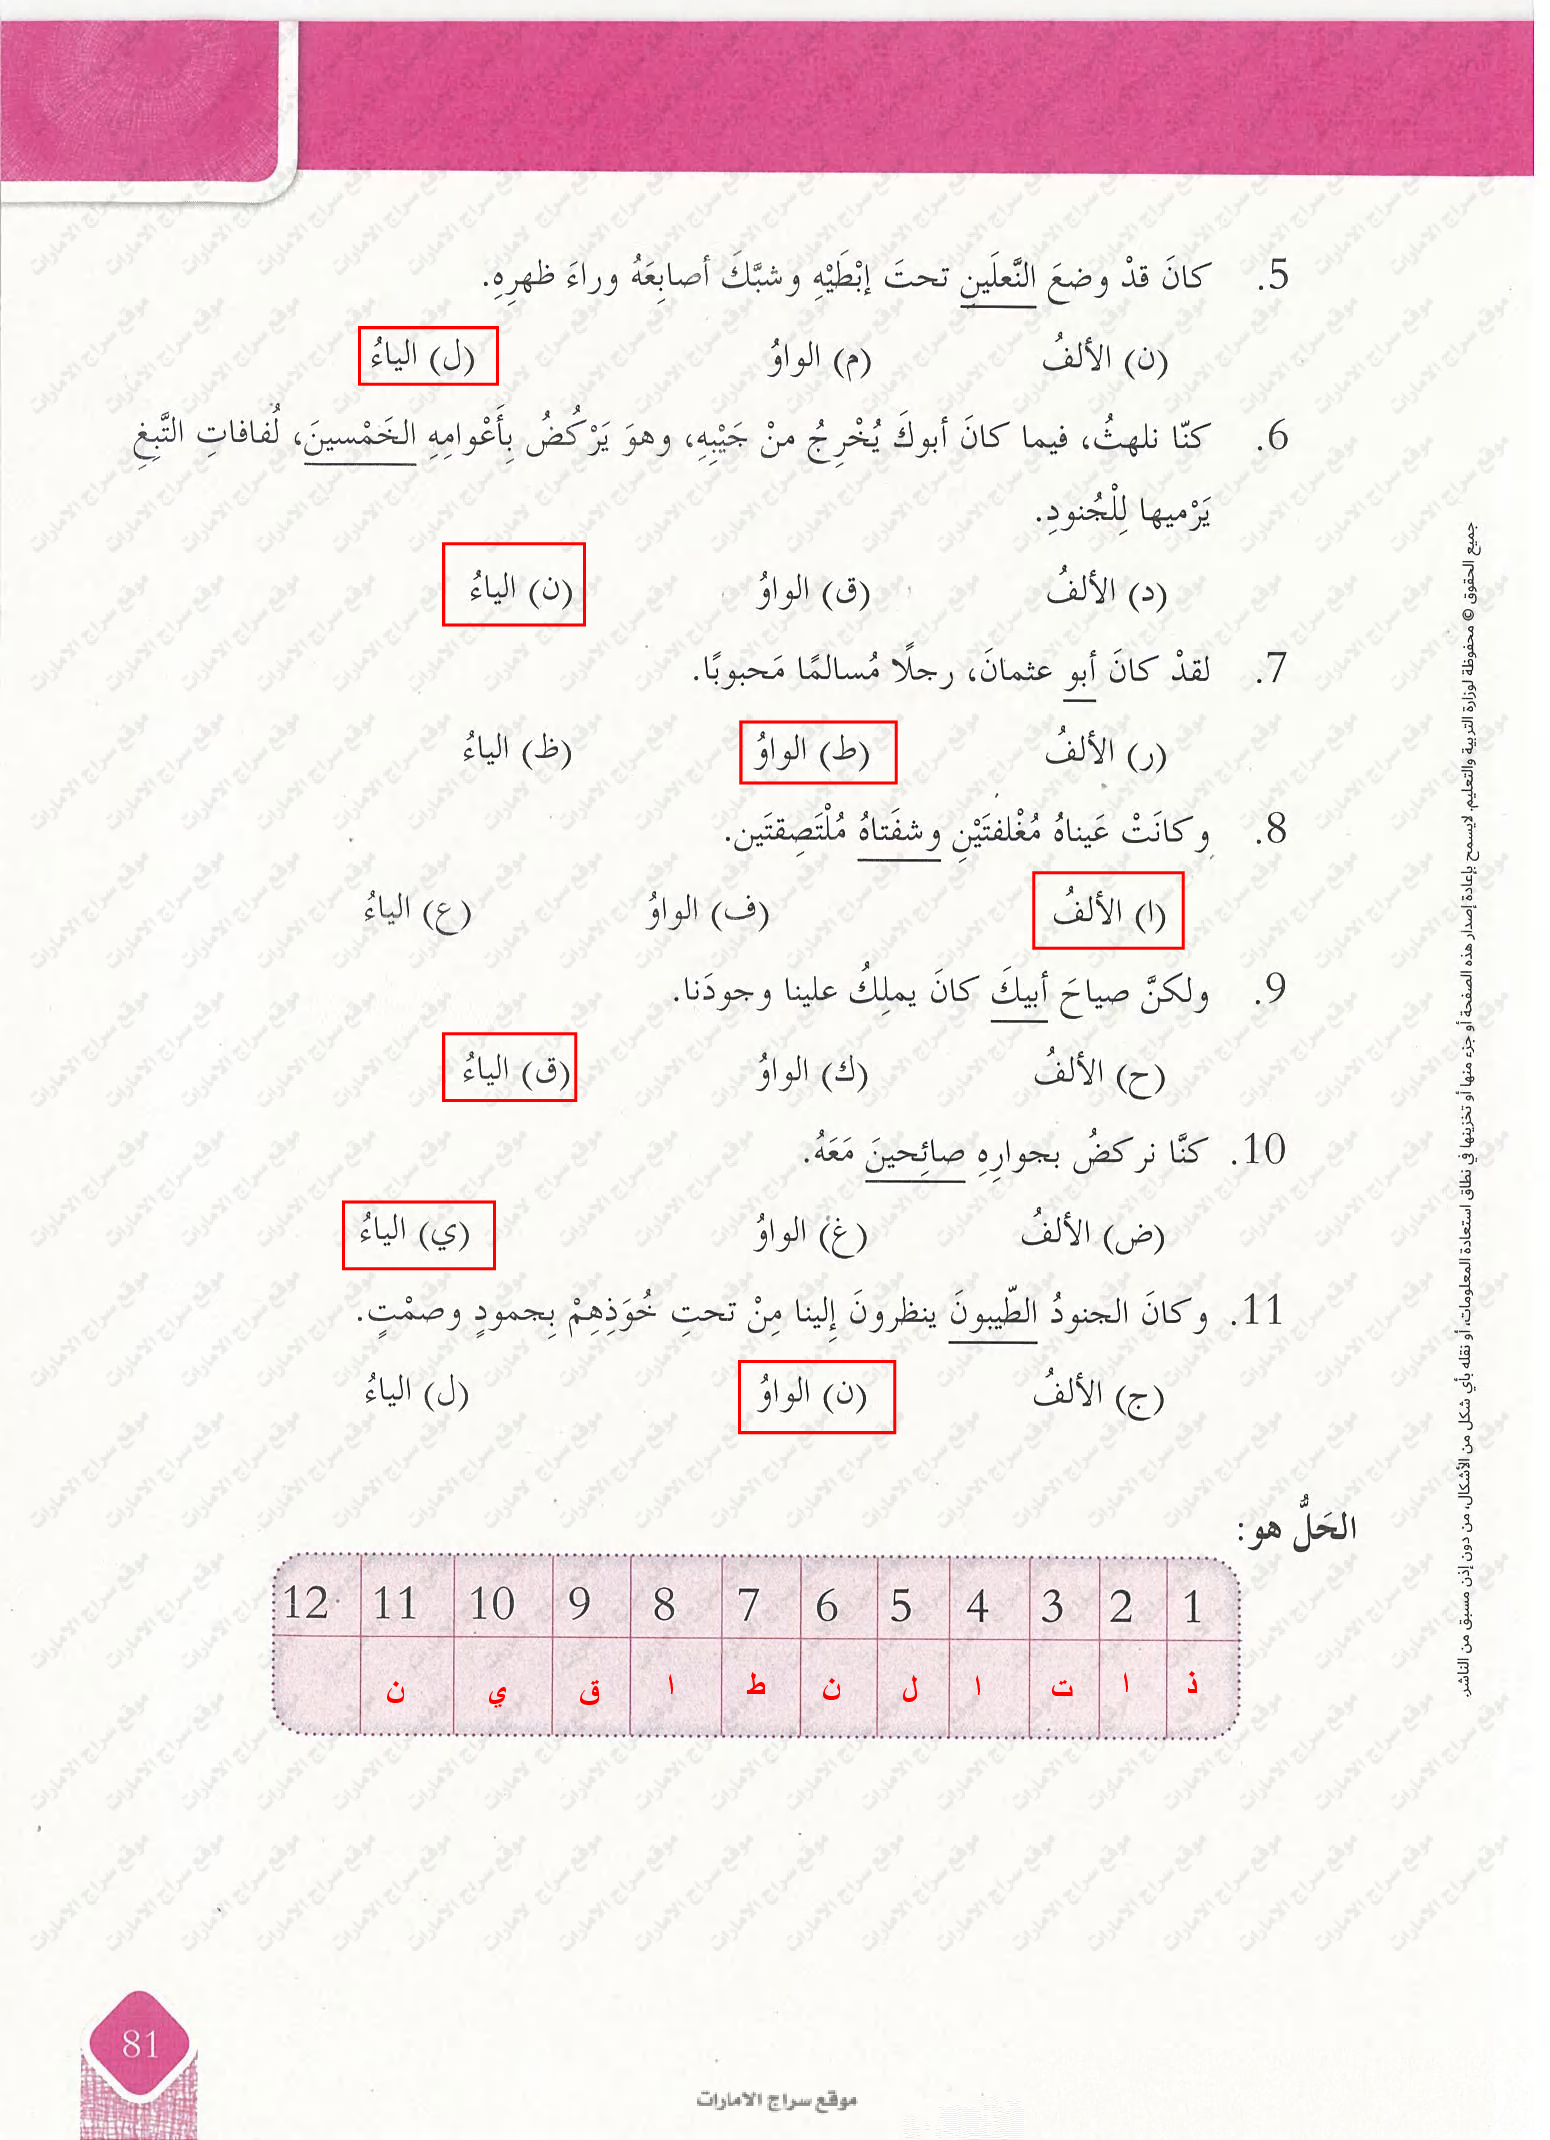 5. كانَ قدْ وضعَ النَّعلَينِ تحتَ إبْطَيْهِ وشبَّكَ أصابِعَهُ وراءَ ظهرِهِ.
(ن) الألفُ (م) الواوُ (ل) الياءُ
6. كنّا نلهثُ، فيما كانَ أبوكَ يُخْرِجُ منْ جَيْبِهِ، وهوَ يَرْكُضُ بِأَعْوامِهِ الخَمْسينَ، لُفافاتِ التَّبِغِ
يَرْميها لِلْجُنودِ.
(د) الألفُ (ق) الواوُ (ن) الياءُ
7. لقدْ كانَ أبو عثمانَ، رجلًا مُسالمًا مَحبوبًا.
(ر) الألفُ (ط) الواوُ (ظ) الياءُ
8. وكانَتْ عَيناهُ مُغْلفتَيْنِ وشفَتاهُ مُلْتَصِقتَين.
(ا) الألفُ (ف) الواوُ (ع) الياءُ
9. ولكنَّ صياحَ أبيكَ كانَ يملِكُ علينا وجودَنا.
(ح) الألفُ (ك) الواوُ (ق) الياءُ
10. كنَّا نركضُ بجوارِهِ صائِحينَ مَعَهُ.
(ض) الألفُ (غ) الواوُ (ي) الياءُ
11. وكانَ الجنودُ الطّيبونَ ينظرونَ إلينا مِنْ تحتِ خُوَذِهِمْ بِجمودٍ وصمْتٍ.
(ج) الألفُ (ن) الواوُ (ل) الياءُ
الحَلُّ هو:
1 2 3 4 5 6 7 8 9 10 11 12
ذ ا ت ا ل ن ط ا ق ي ن
جميع الحقوق © محفوظة لوزارة التربية والتعليم. لايسمح بإعادة إصدار هذه الصفحة أو جزء منها أو تخزينها في نطاق استعادة المعلومات، أو نقله بأي شكل من الأشكال، من دون إذن مسبق من الناشر.
81
موقع سراج الامارات